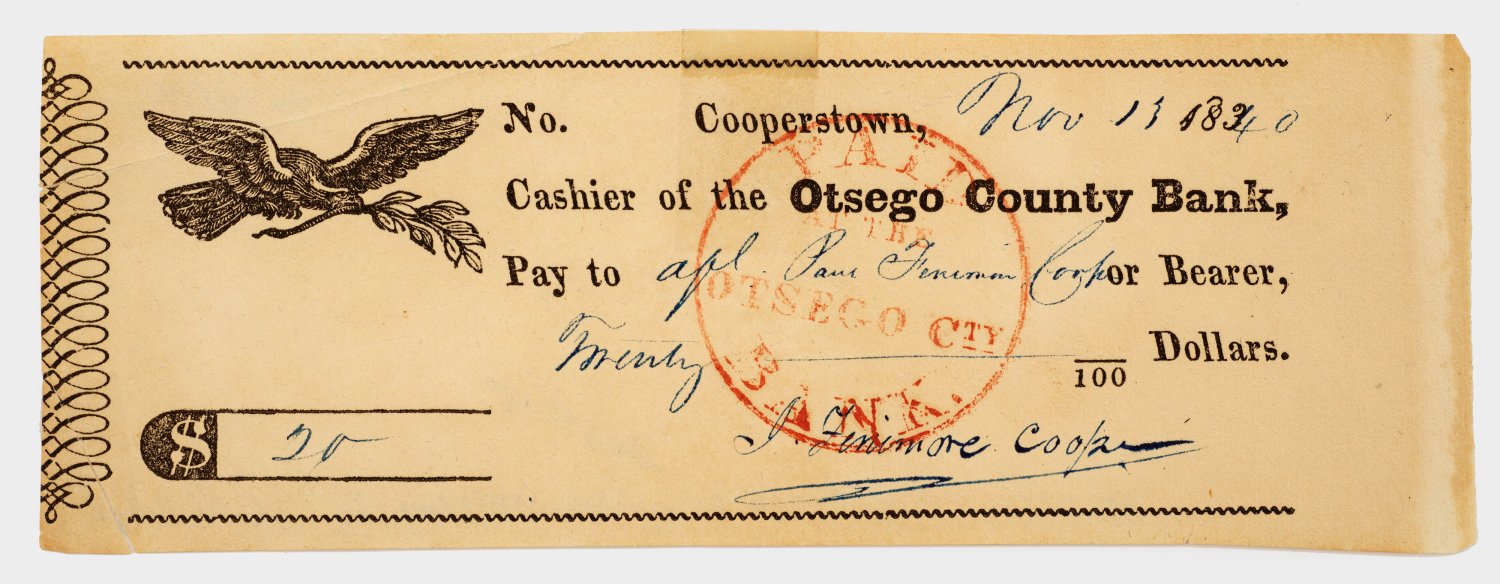 No. Cooperstown, Nov 13 1840
Cashier of the Otsego County Bank,
Pay to Paul Fenimore Coop or Bearer,
Twenty /100 Dollars.
$ 20
J. Fenimore Cooper
PAID
AT THE
OTSEGO CTY
BANK.